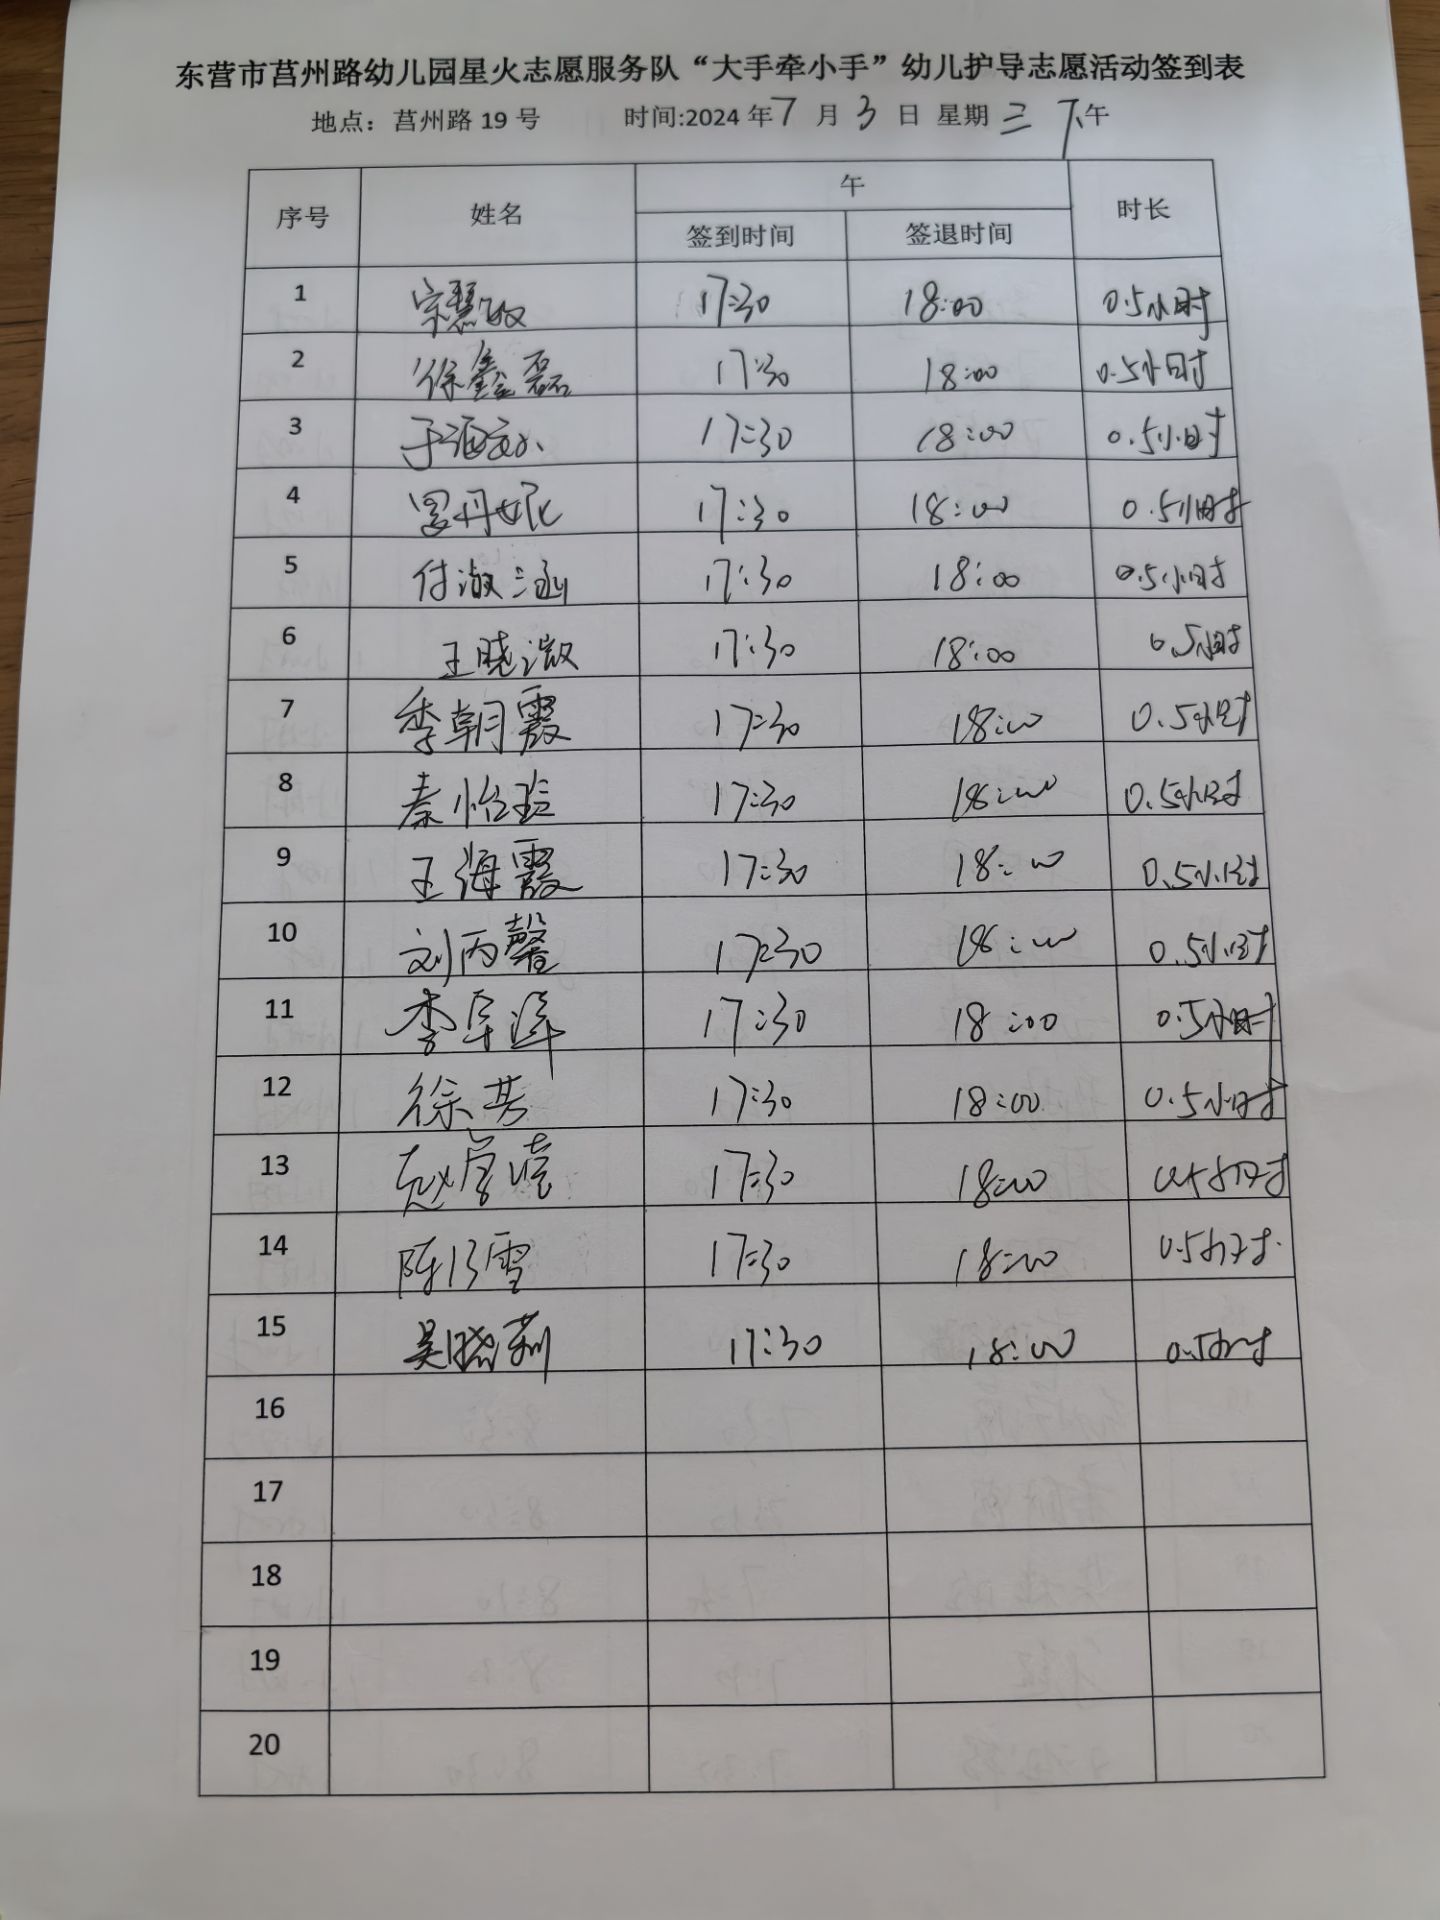 东营市莒州路幼儿园星火志愿服务队“大手牵小手”幼儿护导志愿活动签到表
地点：莒州路 19 号 时间:2024 年 7 月 3 日 星期 三 下午
序号 姓名 午 时长
签到时间 签退时间
1 宗慧敏 17:30 18:00 0.5小时
2 徐鑫磊 17:30 18:00 0.5小时
3 17:30 18:00 0.5小时
4 罗丹妮 17:30 18:00 0.5小时
5 付淑涵 17:30 18:00 0.5小时
6 王晓溦 17:30 18:00 0.5小时
7 李朝霞 17:30 18:00 0.5小时
8 秦怡 17:30 18:00 0.5小时
9 王海霞 17:30 18:00 0.5小时
10 刘丙馨 17:30 18:00 0.5小时
11 李 17:30 18:00 0.5小时
12 徐芳 17:30 18:00 0.5小时
13 赵 17:30 18:00 0.5小时
14 陈 雪 17:30 18:00 0.5小时
15 吴晓莉 17:30 18:00 0.5小时
16
17
18
19
20